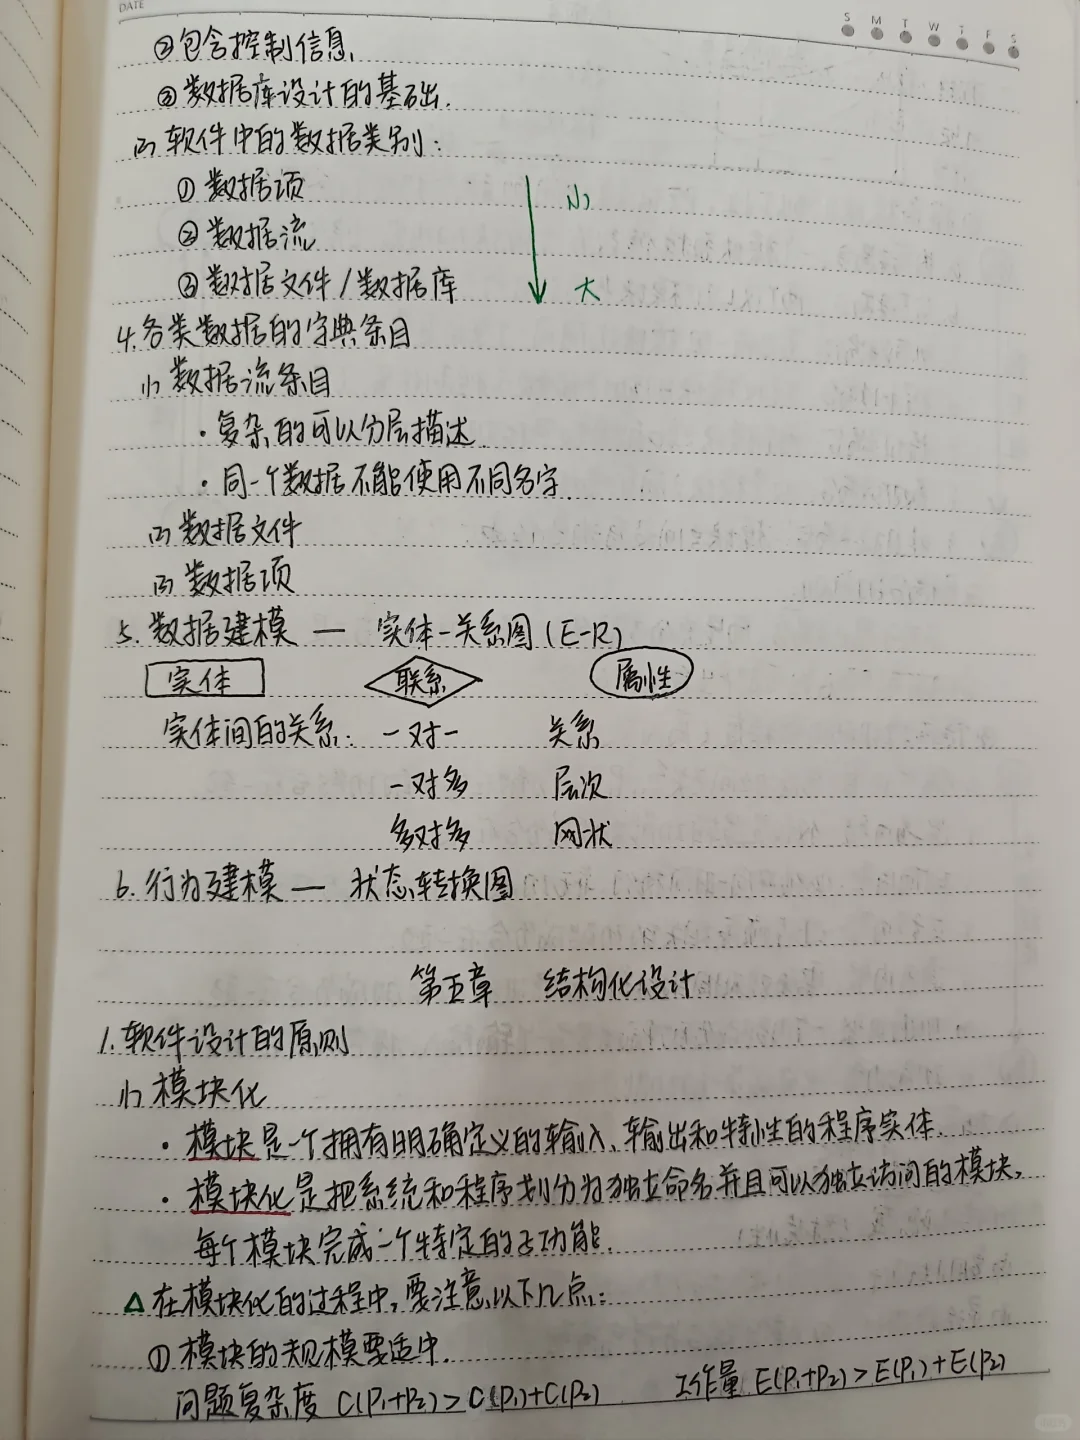 DATE
S M T W T F S
② 包含控制信息.
③ 数据库设计的基础.
(2) 软件中的数据类别:
① 数据项 小
② 数据流
③ 数据文件/数据库 大
4. 各类数据的字典条目
(1) 数据流条目
· 复杂的可以分层描述.
· 同一个数据不能使用不同名字.
(2) 数据文件
(3) 数据项
5. 数据建模 — 实体-关系图(E-R)
实体 联系 属性
实体间的关系: 一对一 关系
一对多 层次
多对多 网状
6. 行为建模 — 状态转换图
第五章 结构化设计
1. 软件设计的原则
(1) 模块化
· 模块是一个拥有明确定义的输入、输出和特性的程序实体.
· 模块化是把系统和程序划分为独立命名并且可以独立访问的模块,
每个模块完成一个特定的子功能.
△ 在模块化的过程中,要注意以下几点:
① 模块的规模要适中.
问题复杂度 C(P₁+P₂)>C(P₁)+C(P₂) 工作量 E(P₁+P₂)>E(P₁)+E(P₂)